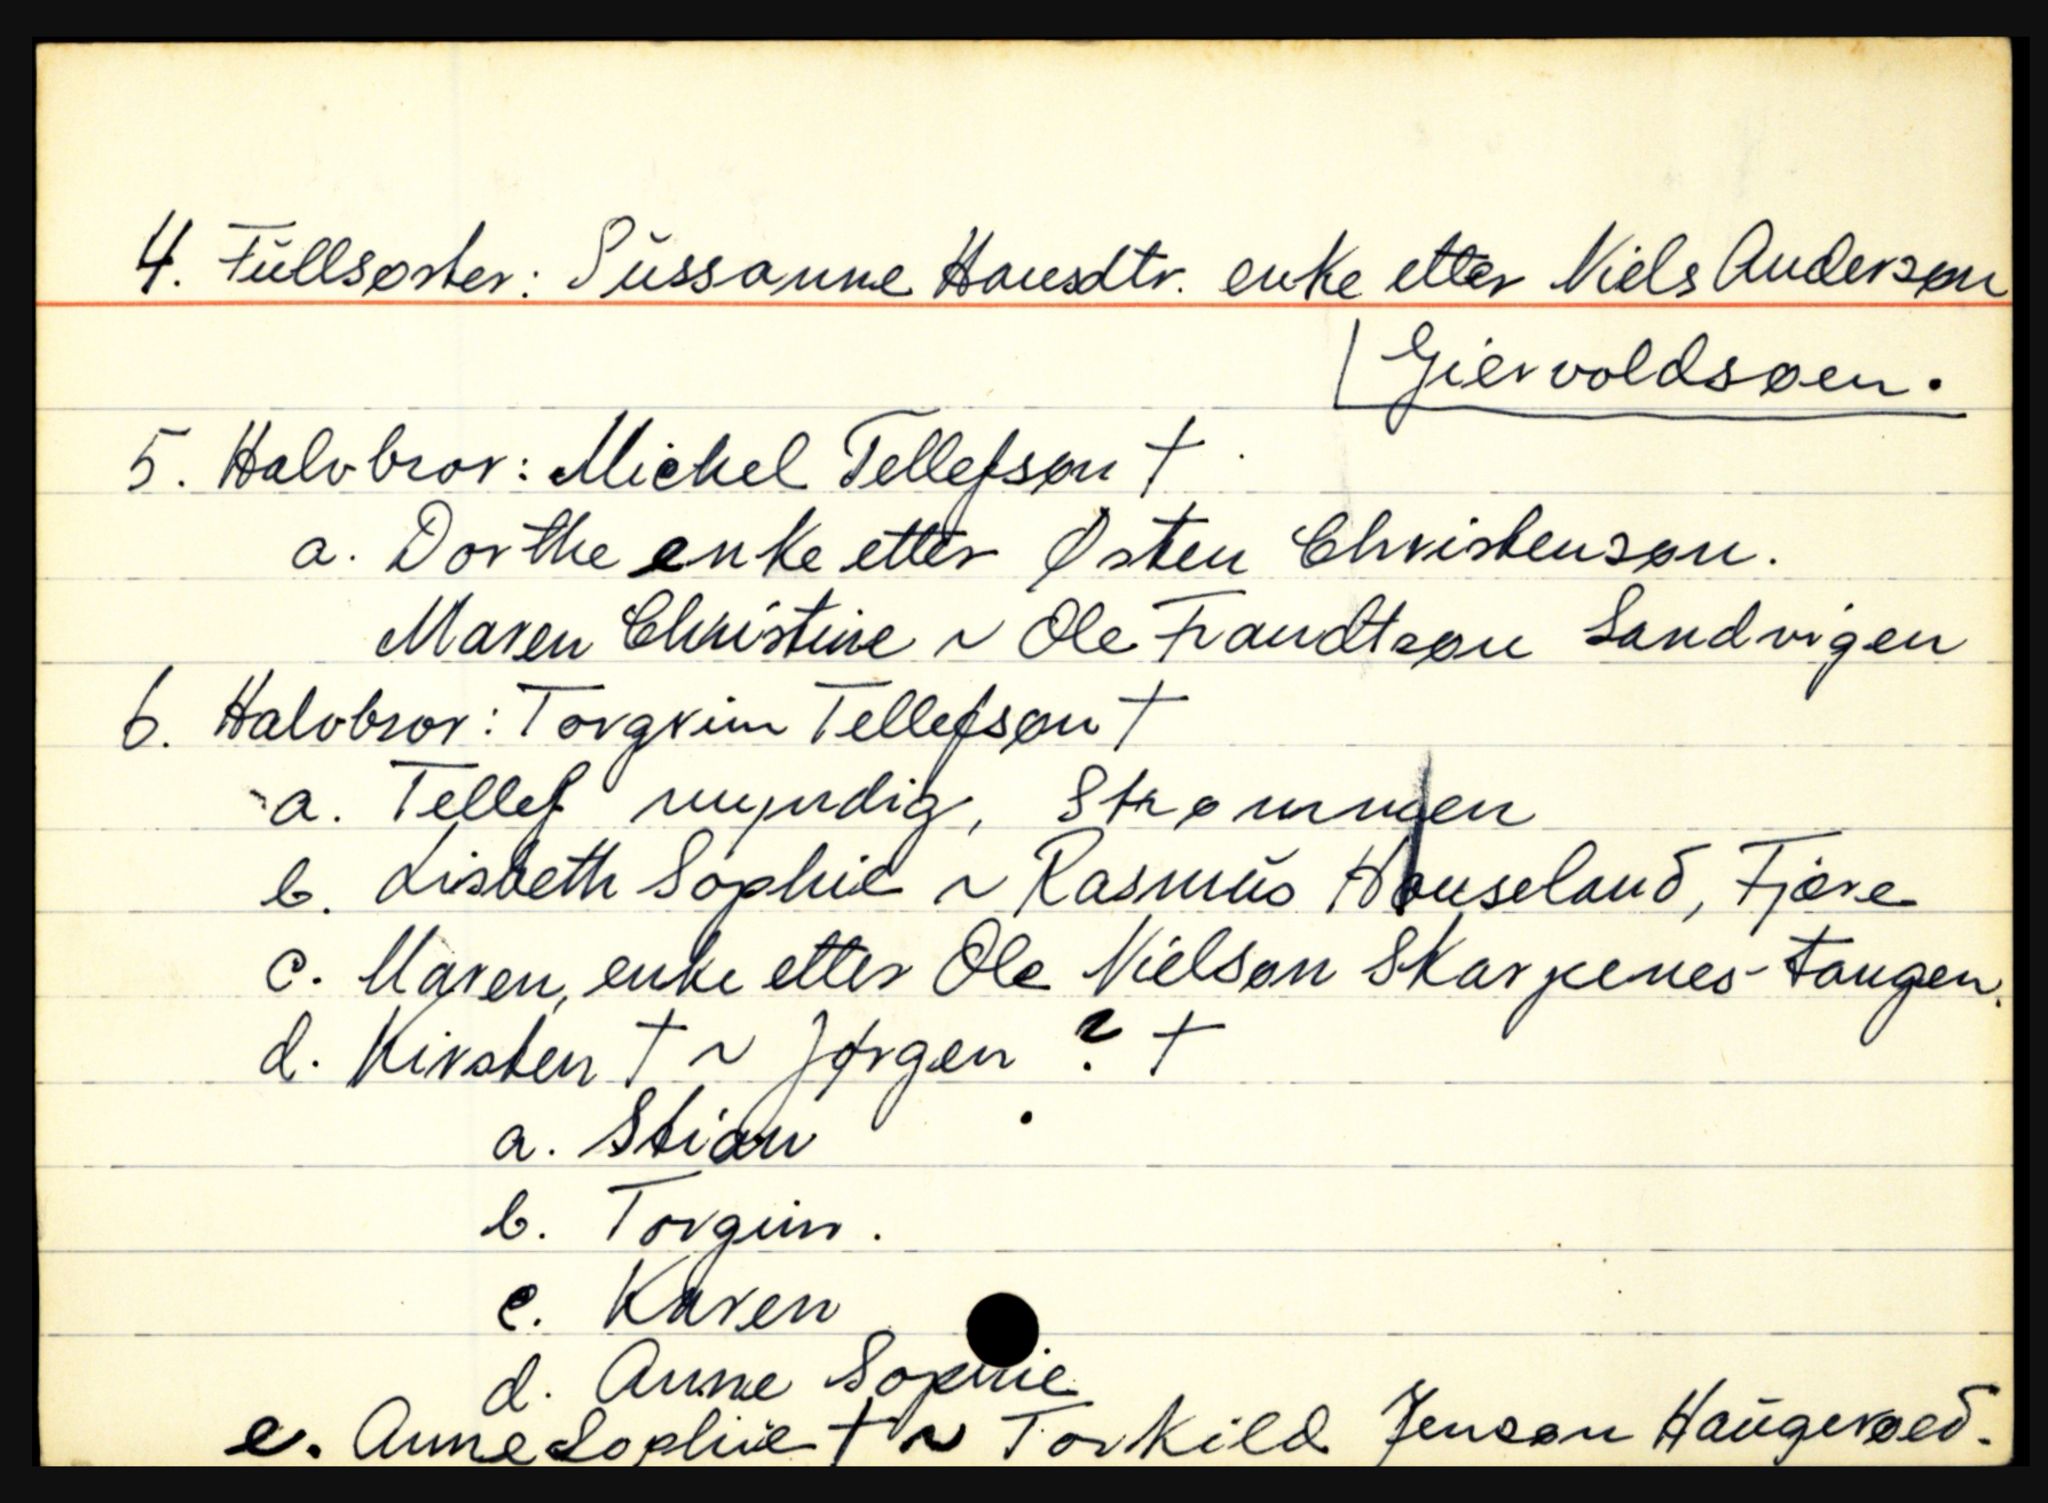 4. Fŭllsøster: Sŭssanne Hansdtr. enke etter Niels Andersøn
Giervoldsøen.
5. Halvbror: Michel Tellefsøn †
a. Dorthe enke etter Østen Christensøn.
Maren Christine ~ Ole Frandtsøn Sandvigen
6. Halvbror: Torgrim Tellefsøn †
a. Tellef myndig, Strømmen
b. Lisbeth Sophie ~ Rasmŭs Houseland, Fjære
c. Maren, enke etter Ole Nielsøn Skarpenes-tangen.
d. Kirsten † ~ Jørgen ? †
a. Stian
b. Torgim.
c. Karen
d. Anne Sophie
e. Anne Sophie † ~ Torkild Jensøn Haŭgerød.